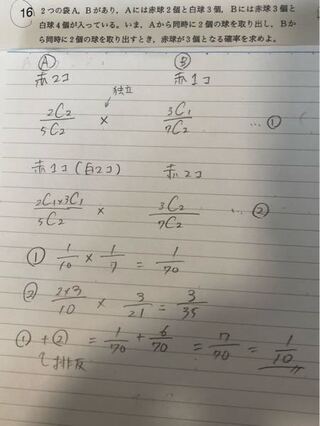 16 2つの袋A，Bがあり，Aには赤球2個と白球3個，Bには赤球3個と
白球4個が入っている。いま，Aから同時に2個の球を取り出し，Bか
ら同時に2個の球を取り出すとき，赤球が3個となる確率を求めよ。
Ⓐ Ⓑ
赤2コ 赤1コ
独立
2C2/5C2 × 3C1/7C2 … ①
赤1コ(白2コ) 赤2コ
2C1×3C1/5C2 × 3C2/7C2 … ②
① 1/10 × 1/7 = 1/70
② 2×3/10 × 3/21 = 3/35
①+② = 1/70 + 6/70 = 7/70 = 1/10
排反